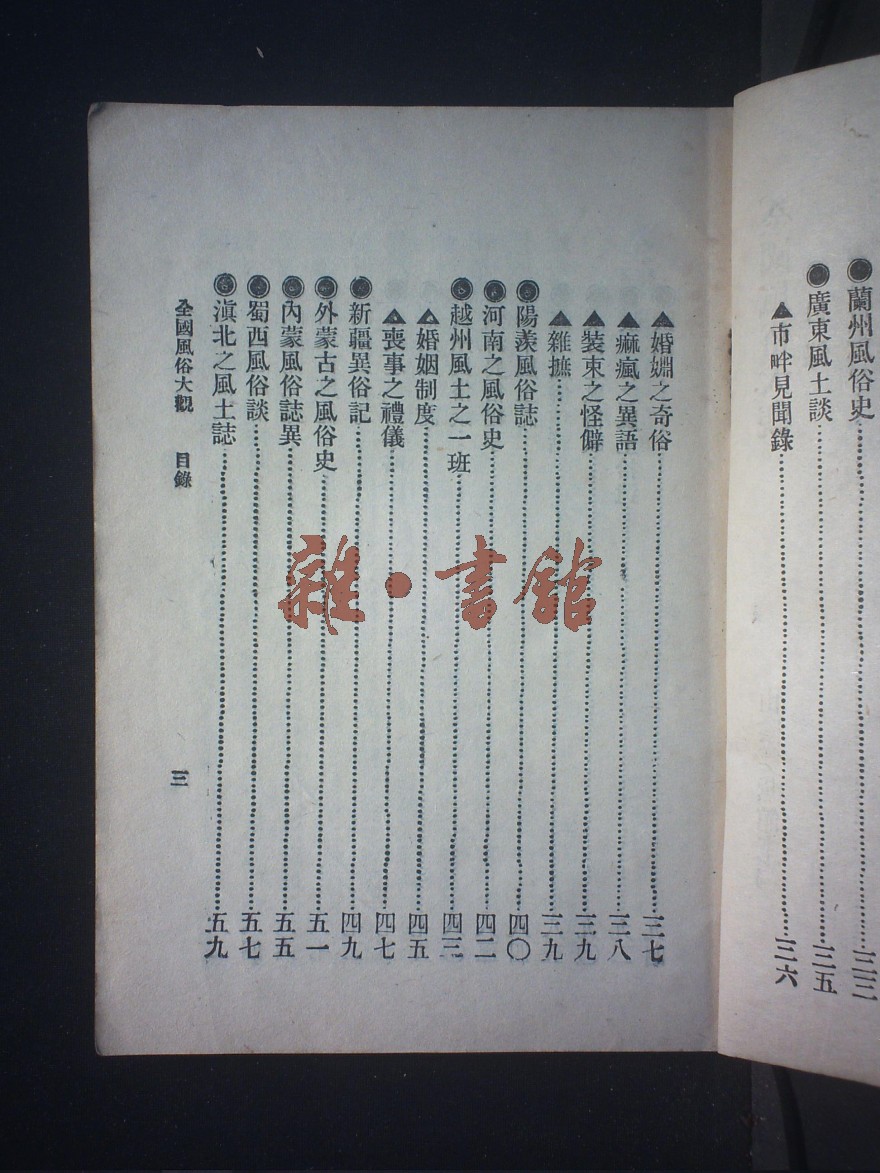 ◉蘭州風俗史……三三
◉廣東風土談……三五
▲市畔見聞錄……三六
▲婚婣之奇俗……三七
▲痲瘋之異語……三八
▲裝束之怪僻……三九
▲雜摭……三九
◉陽羨風俗誌……四〇
◉河南之風俗史……四二
◉越州風土之一班……四三
▲婚姻制度……四五
▲喪事之禮儀……四七
◉新疆異俗記……四九
◉外蒙古之風俗史……五一
◉內蒙風俗誌異……五五
◉蜀西風俗談……五七
◉滇北之風土誌……五九
全國風俗大觀 目錄 三
雜·書館